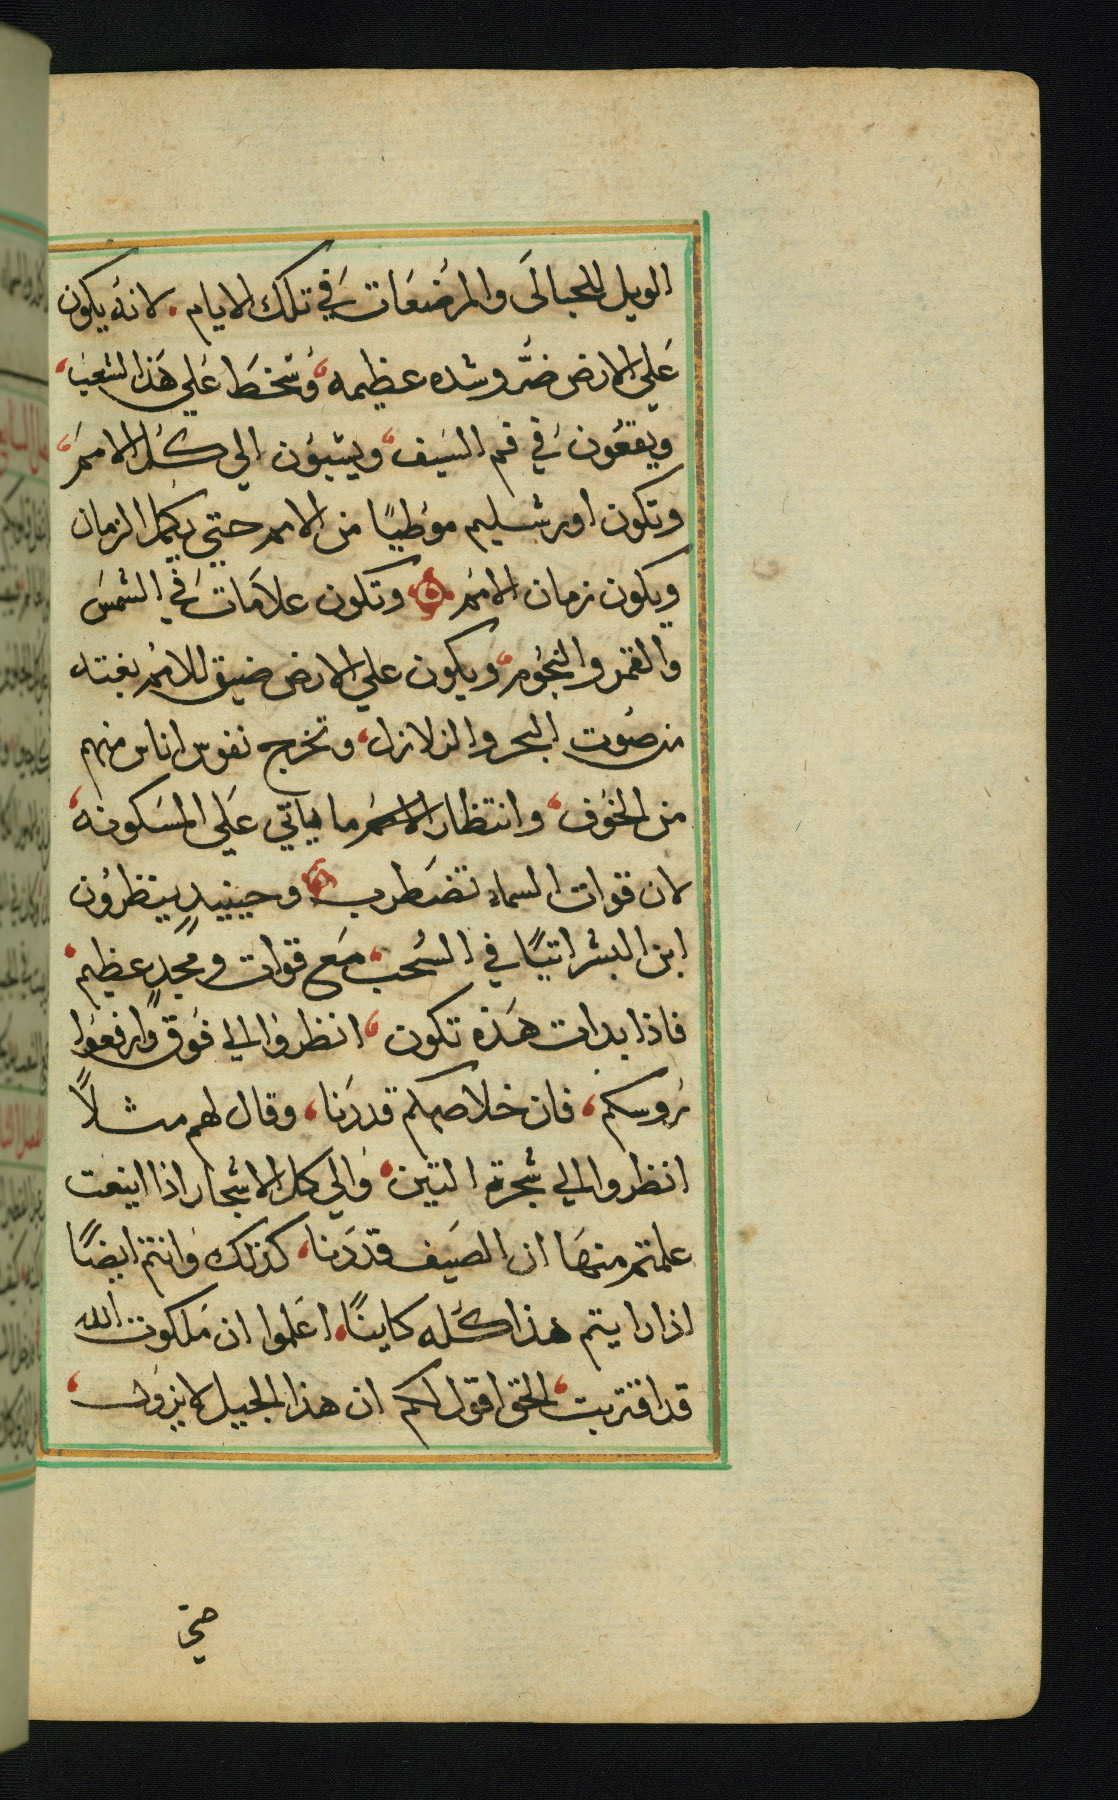 الويل للحبالَي والمرضعَات في تلك الايام. لانه يكون
عَلي الارض ضرّ وشده عظيمه، وسَخط عَلي هَذا الشعب،
ويقعُون في فم السَيف، ويسَبون الي كُل الامم،
وتكون اورشليم موَطيًا من الامم حتي يكمل الزمان
ويكون زمان الامم وتكون علاَمات في الشمسَ
والقمر والنجُوم، ويكون علي الارض ضيق للامُم بغته
من صُوت البحر والزلازل، وتخرج نفوس اناس منهم
من الخوف، وانتظار ما ياتي عَلي المسَكونه،
لان قوات السماء تضطرب وحينيدٍ ينظرُون
ابن البشر اتيًا في السُحب، مَع قوات ومجدٍ عظيم.
فاذا بدات هَذه تكون، انظروا الي فوَق وارفعوَا
رُوسكم، فان خلاصكم قد دَنا، وقال لهم مثلاً
انظروا الي شجرة التين، وَالي كل الاشجار اذا اينعت
علمتم منهَا ان الصَيف قد دَنا، كذلك وَانتم ايضًا
اذا رايتم هذا كُله كاينًا، اعَلموا ان مَلكوت الله
قد اقتربت، الحق اقول لكم ان هذا الجيل لا يزول،
حتي